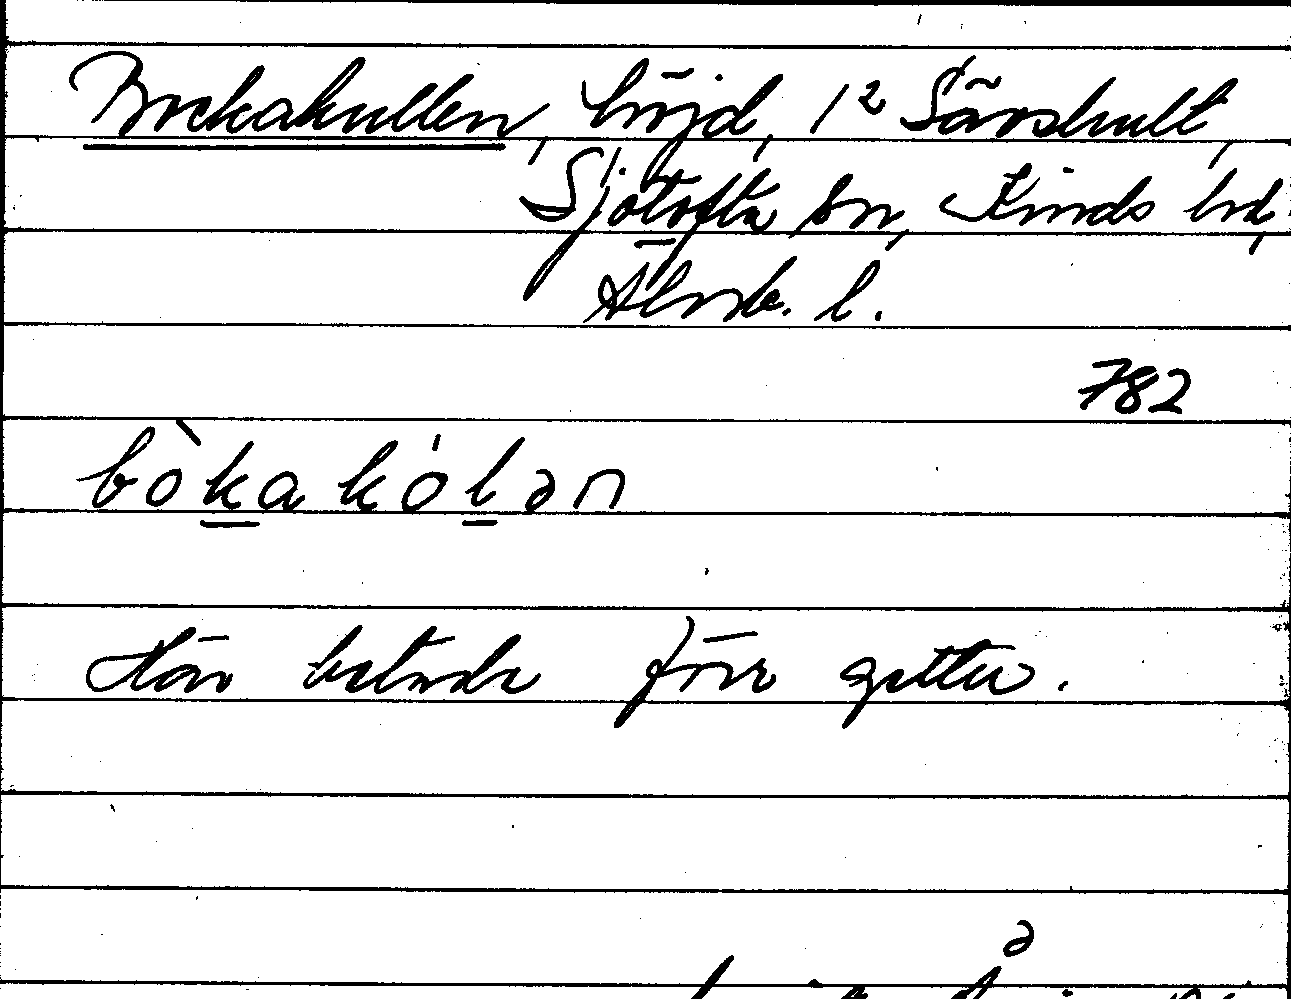 Bockakullen, höjd, 1² Särshult,
Sjötofta sn, Kinds hd,
Älvsb. l.
782
bòkakólən
Här betade förr getter.